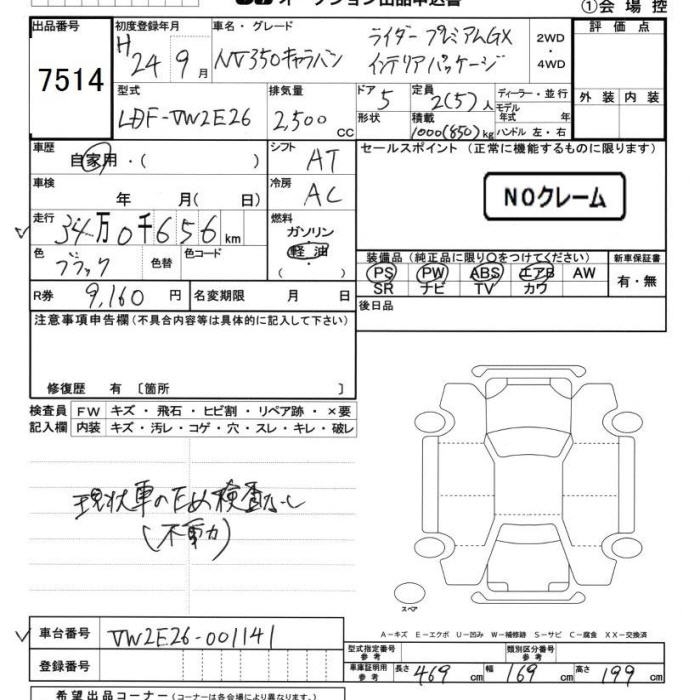 オークション出品申込書
①会 場 控
出品番号
7514
初度登録年月
H24 9月
車名・グレード
NV350キャラバン
ライダー プレミアムGX
インテリアパッケージ
2WD
・
4WD
評 価 点
型式
LDF-VW2E26
排気量
2,500 CC
ドア
5
形状
定員
2(5)人
積載
1000(850)kg
ディーラー・並行
モデル
年式 年
ハンドル 左・右
外 装 内 装
車歴
自家用・( )
シフト
AT
セールスポイント (正常に機能するものに限ります)
NOクレーム
車検
年 月( 日)
冷房
AC
走行
34万0千656km
燃料
ガソリン
軽 油
( ・ )
色
ブラック
色替
色コード
装備品 (純正品に限り○をつけてください)
PS PW ABS エアB AW
SR ナビ TV カワ
新車保証書
有・無
R券 9,160 円
名変期限 月 日
後日品
注意事項申告欄 (不具合内容等は具体的に記入して下さい)
修復歴 有 〔箇所 〕
検査員 FW キズ・飛石・ヒビ割・リペア跡・×要
記入欄 内装 キズ・汚レ・コゲ・穴・スレ・キレ・破レ
現状車のため検査なし
(不動)
スペア
A-キズ E-エクボ U-凹み W-補修跡 S-サビ C-腐食 XX-交換済
車台番号 VW2E26-001141
登録番号
型式指定番号
参 考
類別区分番号
参 考
車庫証明用
参 考
長さ 469 cm 幅 169 cm 高さ 199 cm
希望出品コーナー (コーナーは各会場により異なります。)